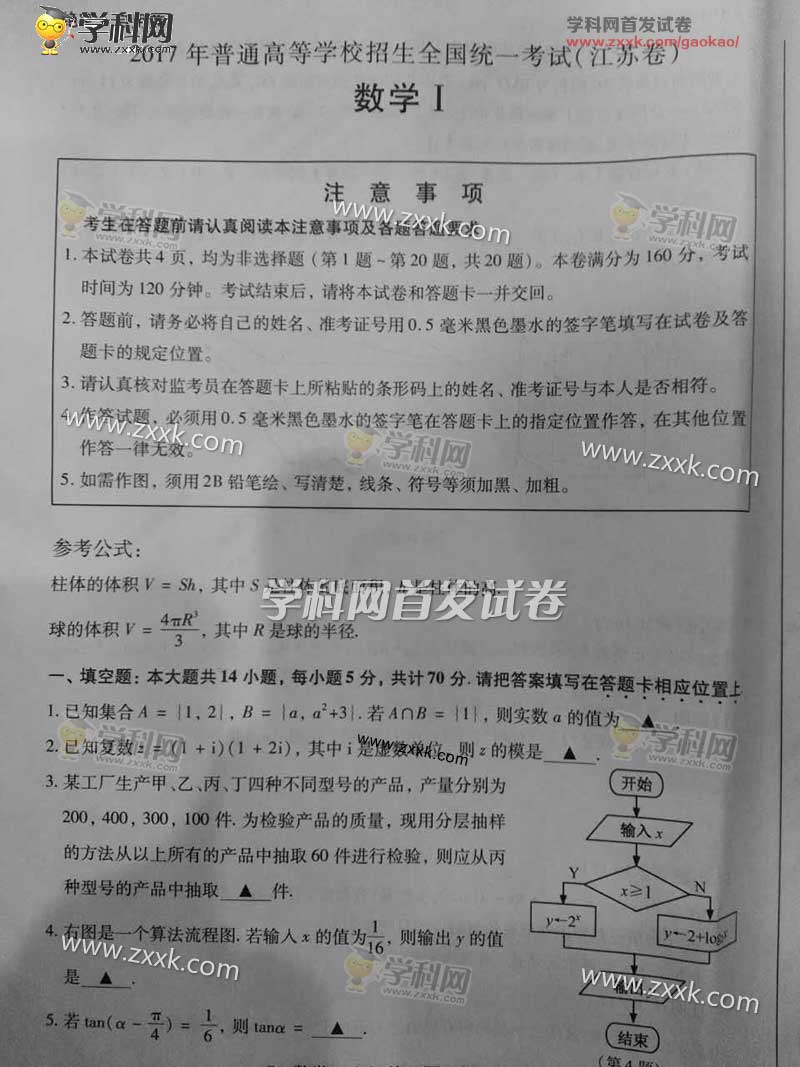 学科网
学科网首发试卷
www.zxxk.com/gaokao/
2017 年普通高等学校招生全国统一考试(江苏卷)
数学 Ⅰ
注 意 事 项
考生在答题前请认真阅读本注意事项及各题答题要求
1. 本试卷共 4 页, 均为非选择题 (第 1 题 ~ 第 20 题, 共 20 题)。本卷满分为 160 分, 考试
时间为 120 分钟。考试结束后, 请将本试卷和答题卡一并交回。
2. 答题前, 请务必将自己的姓名、准考证号用 0.5 毫米黑色墨水的签字笔填写在试卷及答
题卡的规定位置。
3. 请认真核对监考员在答题卡上所粘贴的条形码上的姓名、准考证号与本人是否相符。
4. 作答试题, 必须用 0.5 毫米黑色墨水的签字笔在答题卡上的指定位置作答, 在其他位置
作答一律无效。
5. 如需作图, 须用 2B 铅笔绘、写清楚, 线条、符号等须加黑、加粗。
参考公式:
柱体的体积 V = Sh, 其中 S
学科网首发试卷
球的体积 V = 4πR³/3, 其中 R 是球的半径.
一、填空题: 本大题共 14 小题, 每小题 5 分, 共计 70 分. 请把答案填写在答题卡相应位置上
1. 已知集合 A = {1, 2}, B = {a, a²+3}. 若 A∩B = {1}, 则实数 a 的值为 ▲
2. 已知复数 z = (1 + i)(1 + 2i), 其中 i 是虚数单位, 则 z 的模是 ▲ .
3. 某工厂生产甲、乙、丙、丁四种不同型号的产品, 产量分别为
200, 400, 300, 100 件. 为检验产品的质量, 现用分层抽样
的方法从以上所有的产品中抽取 60 件进行检验, 则应从丙
种型号的产品中抽取 ▲ 件.
4. 右图是一个算法流程图. 若输入 x 的值为 1/16, 则输出 y 的值
是 ▲ .
5. 若 tan(α - π/4) = 1/6, 则 tanα = ▲ .
开始
输入 x
x≥1
Y
N
y←2ˣ
y←2+log
结束
(第 4 题)
www.zxxk.com